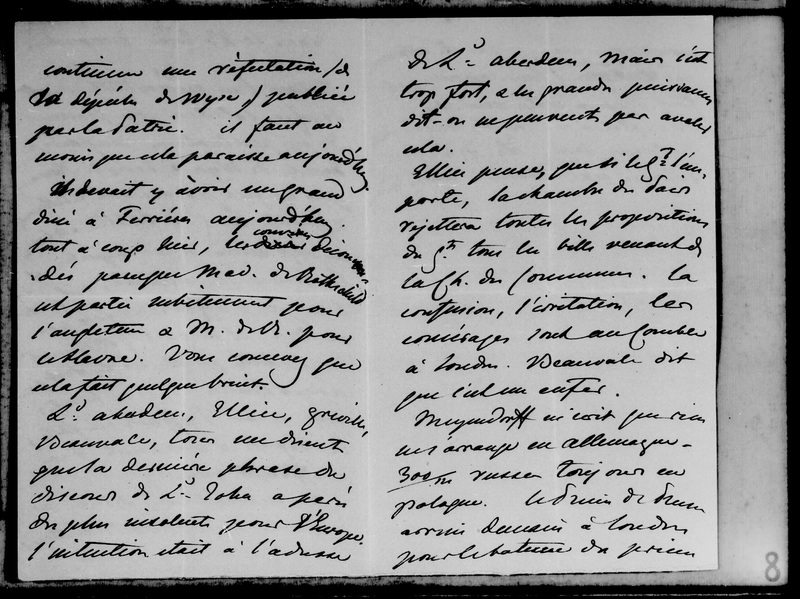 continuer une réfutation (de
la dépêche de Wyse) publiée
par la Patrie. il faut au
moins que cela paraisse aujourd'hui
Il devait y avoir un grand
diné à Ferrières aujourd'hui.
tout à coup hier, les convives
dé parce que Mad. de Rothschild
est partie subitement pour
l'angleterre & M. de R. pour
le Havre. Vous concevez que
cela fait quelque bruit.
Ld aberdeen, Ellice, Greville,
Beauvale, tous me disent
que la dernière phrase du
discours de Ld John a paru
des plus insolents pour l'Europe.
l'intention était à l'adresse
de Ld aberdeen, mais c'est
trop fort, & les grandes puissances
dit-on ne peuvent pas avaler
cela.
Ellice pense, que si le gt l'em-
porte, la chambre des Pairs
rejettera toutes les propositions
du gt tous les bills venant de
la Ch. des Communes. la
confusion, l'irritation, les
comérages sont au comble
à Londres. Beauvale dit
que c'est un enfer.
Meyendorff m'écrit que rien
ne s'arrange en allemagne -
300/m russes toujours en
pologne. le Prince de Prusse
arrive demain à Londres
pour le bateme du prince
8